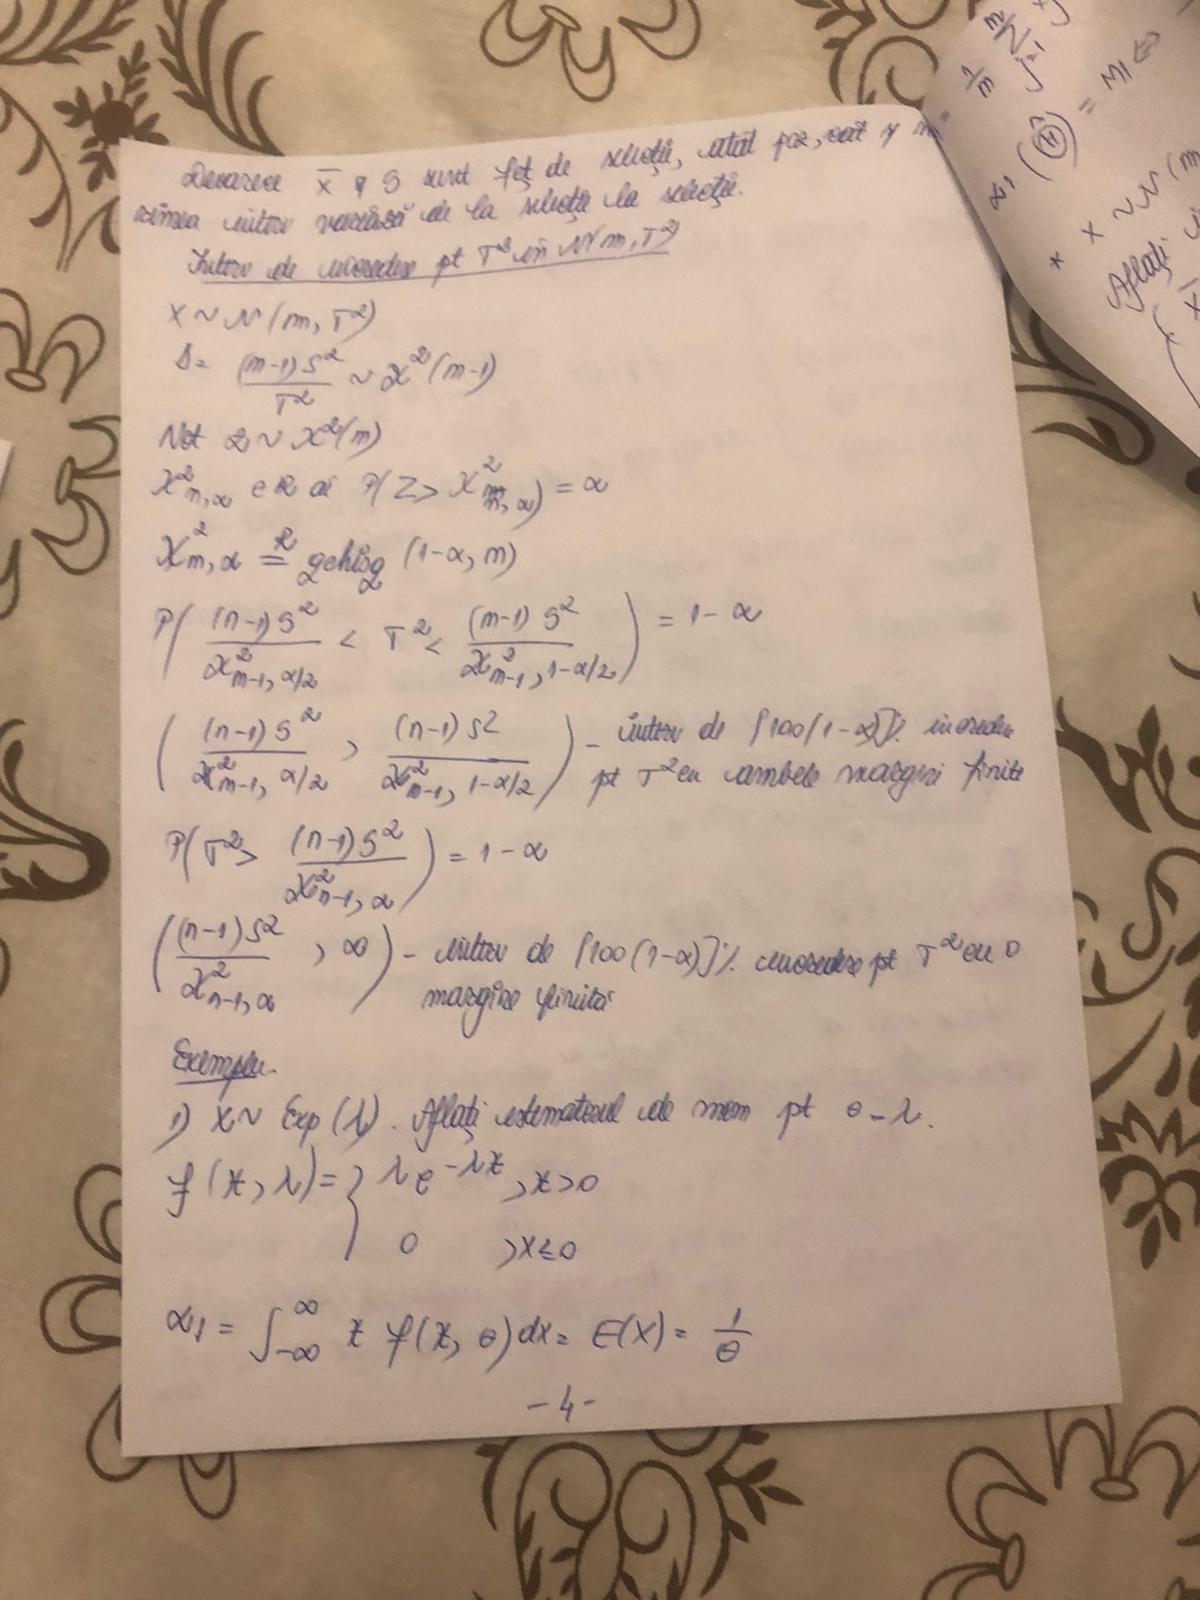 Deoarece x̄ și S sunt fcț de selecție, atât poz, cât și m
rimea interv variază de la selecție la selecție.
Interv de încredere pt T² în N(m, T²)
X ~ N(m, T²)
S = (n-1)S² / T² ~ χ²(n-1)
Not Z ~ χ²(n)
χ²n,α ∈ R aî P(Z > χ²n,α) = α
χ²n,α =R qchisq (1-α, n)
P( (n-1)S² / χ²n-1, α/2 < T² < (n-1)S² / χ²n-1, 1-α/2 ) = 1-α
( (n-1)S² / χ²n-1, α/2 , (n-1)S² / χ²n-1, 1-α/2 ) - interv de [100(1-α)]% încredere
pt T² cu ambele margini finite
P( T² > (n-1)S² / χ²n-1, α ) = 1-α
( (n-1)S² / χ²n-1, α , ∞ ) - interv de [100(1-α)]% încredere pt T² cu o
margine finită
Exemplu.
1) X ~ Exp(λ). Aflați estimatorul de mom pt θ-λ.
f(x, λ) = { λe^-λx , x>0
0 , x≤0
α1 = ∫-∞^∞ x f(x, θ)dx = E(X) = 1/θ
-4-
1/m Σ j=1
α1 (θ̂) = M1 ⇔
* X ~ N(m
Aflați